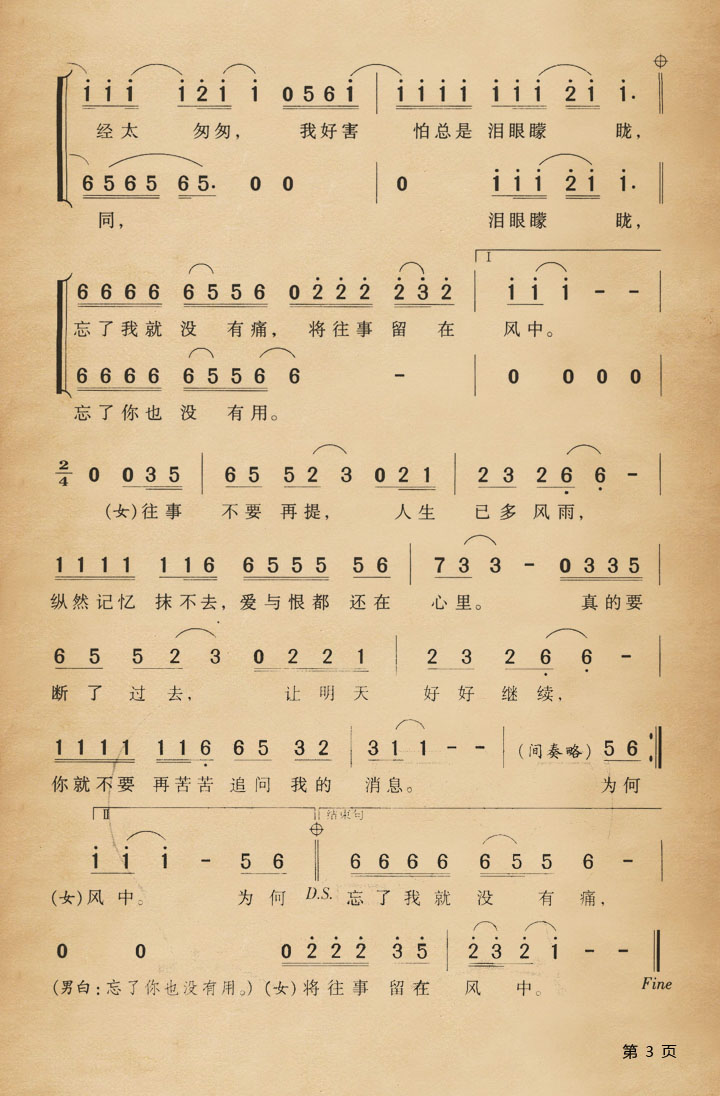 i i i i 2 i i 0 5 6 i i i i i i i i 2 i i·
经太 匆匆， 我好害 怕总是 泪眼矇 眬，
6 5 6 5 6 5· 0 0 0 i i i 2 i i·
同， 泪眼矇 眬，
I
6 6 6 6 6 5 5 6 0 2 2 2 2 3 2 i i i - -
忘了我就 没 有痛， 将往事 留 在 风中。
6 6 6 6 6 5 5 6 6 - 0 0 0 0
忘了你也 没 有用。
2/4 0 0 3 5 6 5 5 2 3 0 2 1 2 3 2 6 6 -
(女)往事 不要 再提， 人生 已多 风雨，
1 1 1 1 1 1 6 6 5 5 5 5 6 7 3 3 - 0 3 3 5
纵然记忆 抹不去，爱与恨都 还在 心里。 真的要
6 5 5 2 3 0 2 2 1 2 3 2 6 6 -
断了 过去， 让明天 好好 继续，
1 1 1 1 1 1 6 6 5 3 2 3 1 1 - - (间奏略) 5 6
你就不要 再苦苦 追问 我的 消息。 为何
II 结束句
i i i - 5 6 6 6 6 6 6 5 5 6 -
(女)风中。 为何 D.S. 忘了我就 没 有痛，
0 0 0 2 2 2 3 5 2 3 2 i - -
(男白：忘了你也没有用。)(女)将往事 留在 风 中。 Fine
第 3 页